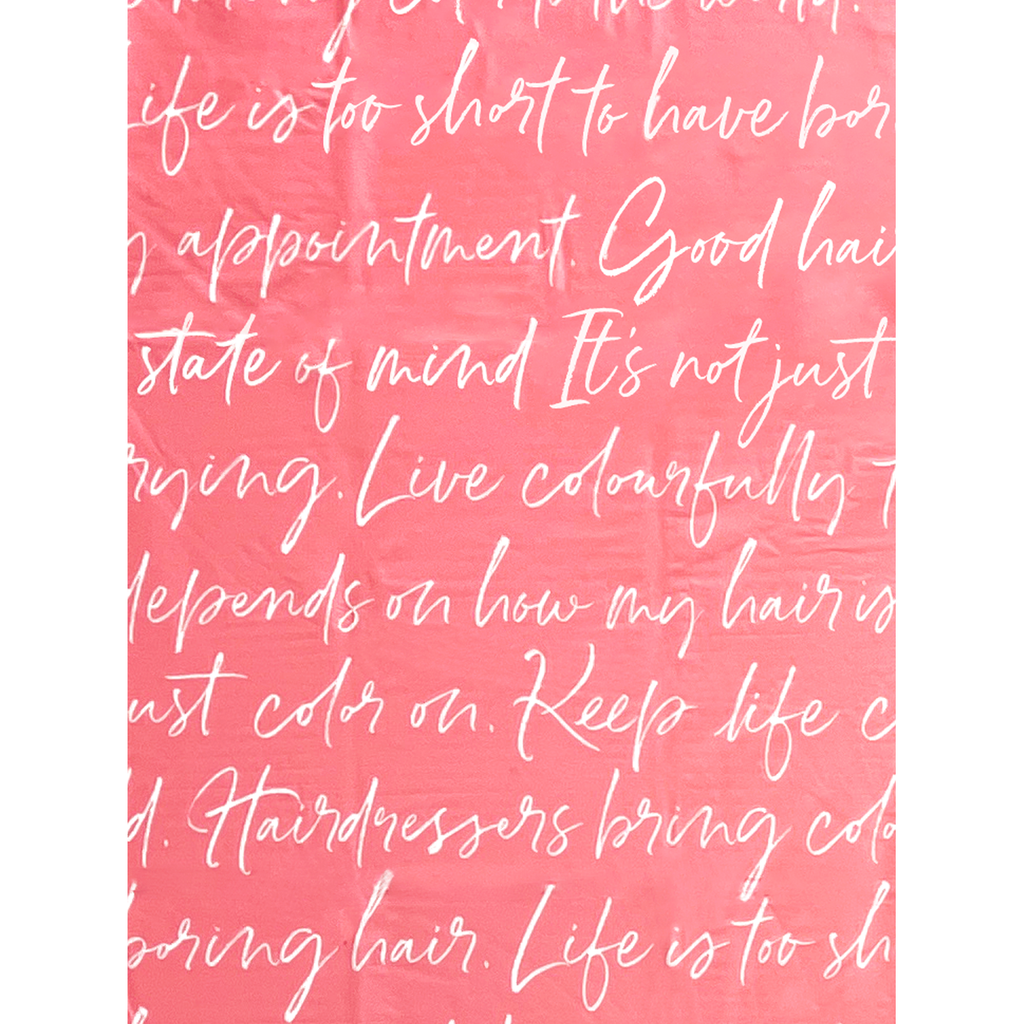 to the world.
ife is too short to have bor
y appointment. Good hai
state of mind It's not just
rying. Live colourfully T
depends on how my hair is
ust color on. Keep life c
d. Hairdressers bring colo
boring hair. Life is too sh